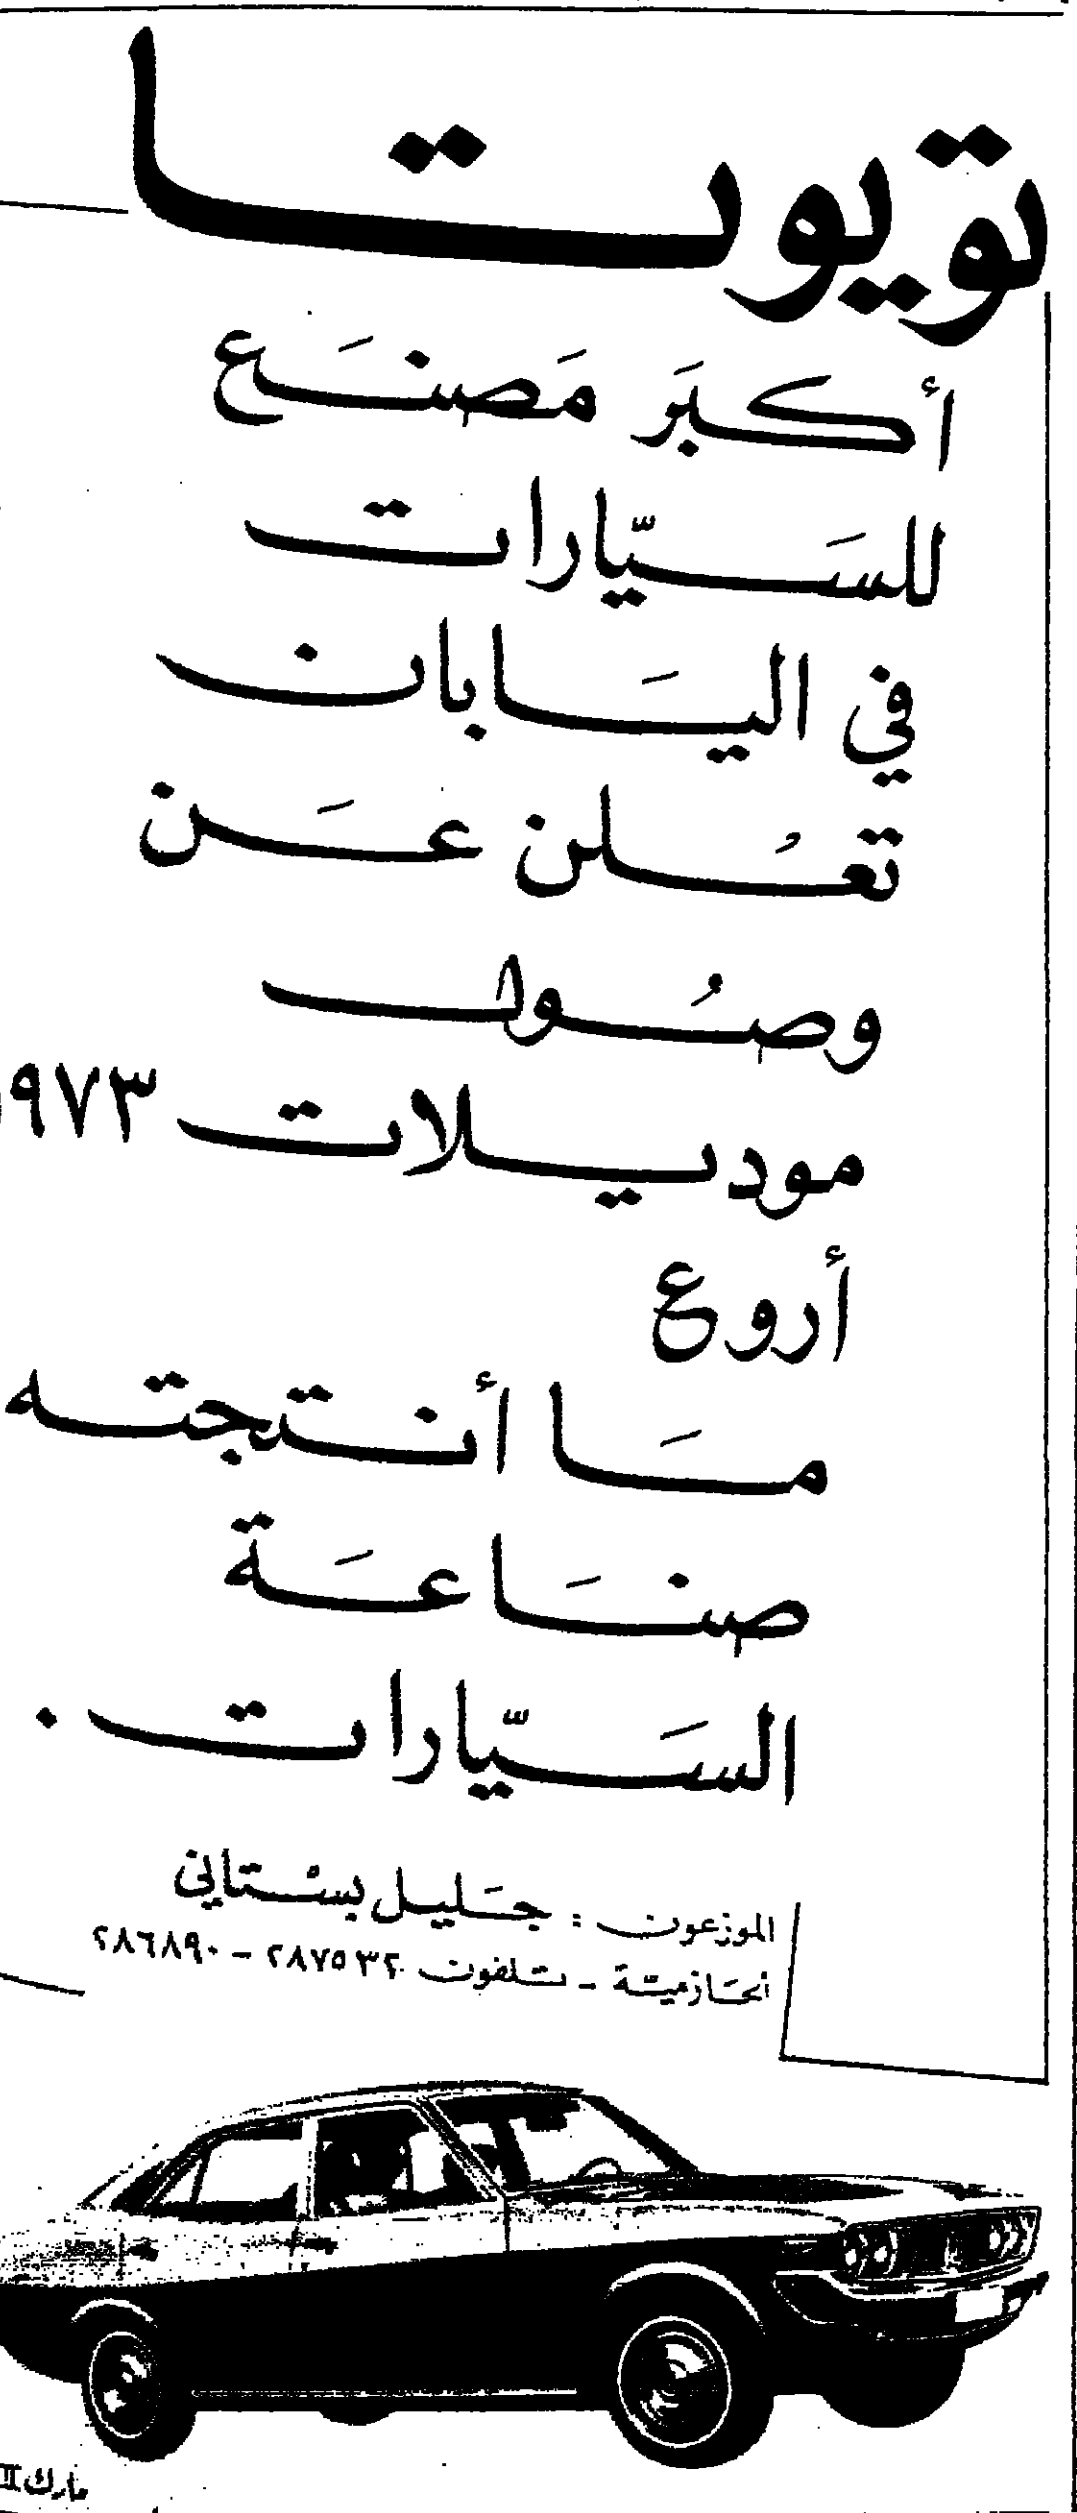 تويوتا
أكبَر مَصنَع
للسَيّارات
في اليَابان
تعُلن عَن
وصُول
موديلات ١٩٧٣
أروع
مَا أنتجته
صنَاعَة
السَيّارات .
الموزعون : جَليل بستاني
الحَازميّة - تلفون ٢٨٧٥٣٢ - ٢٨٦٨٩٠
مارك II